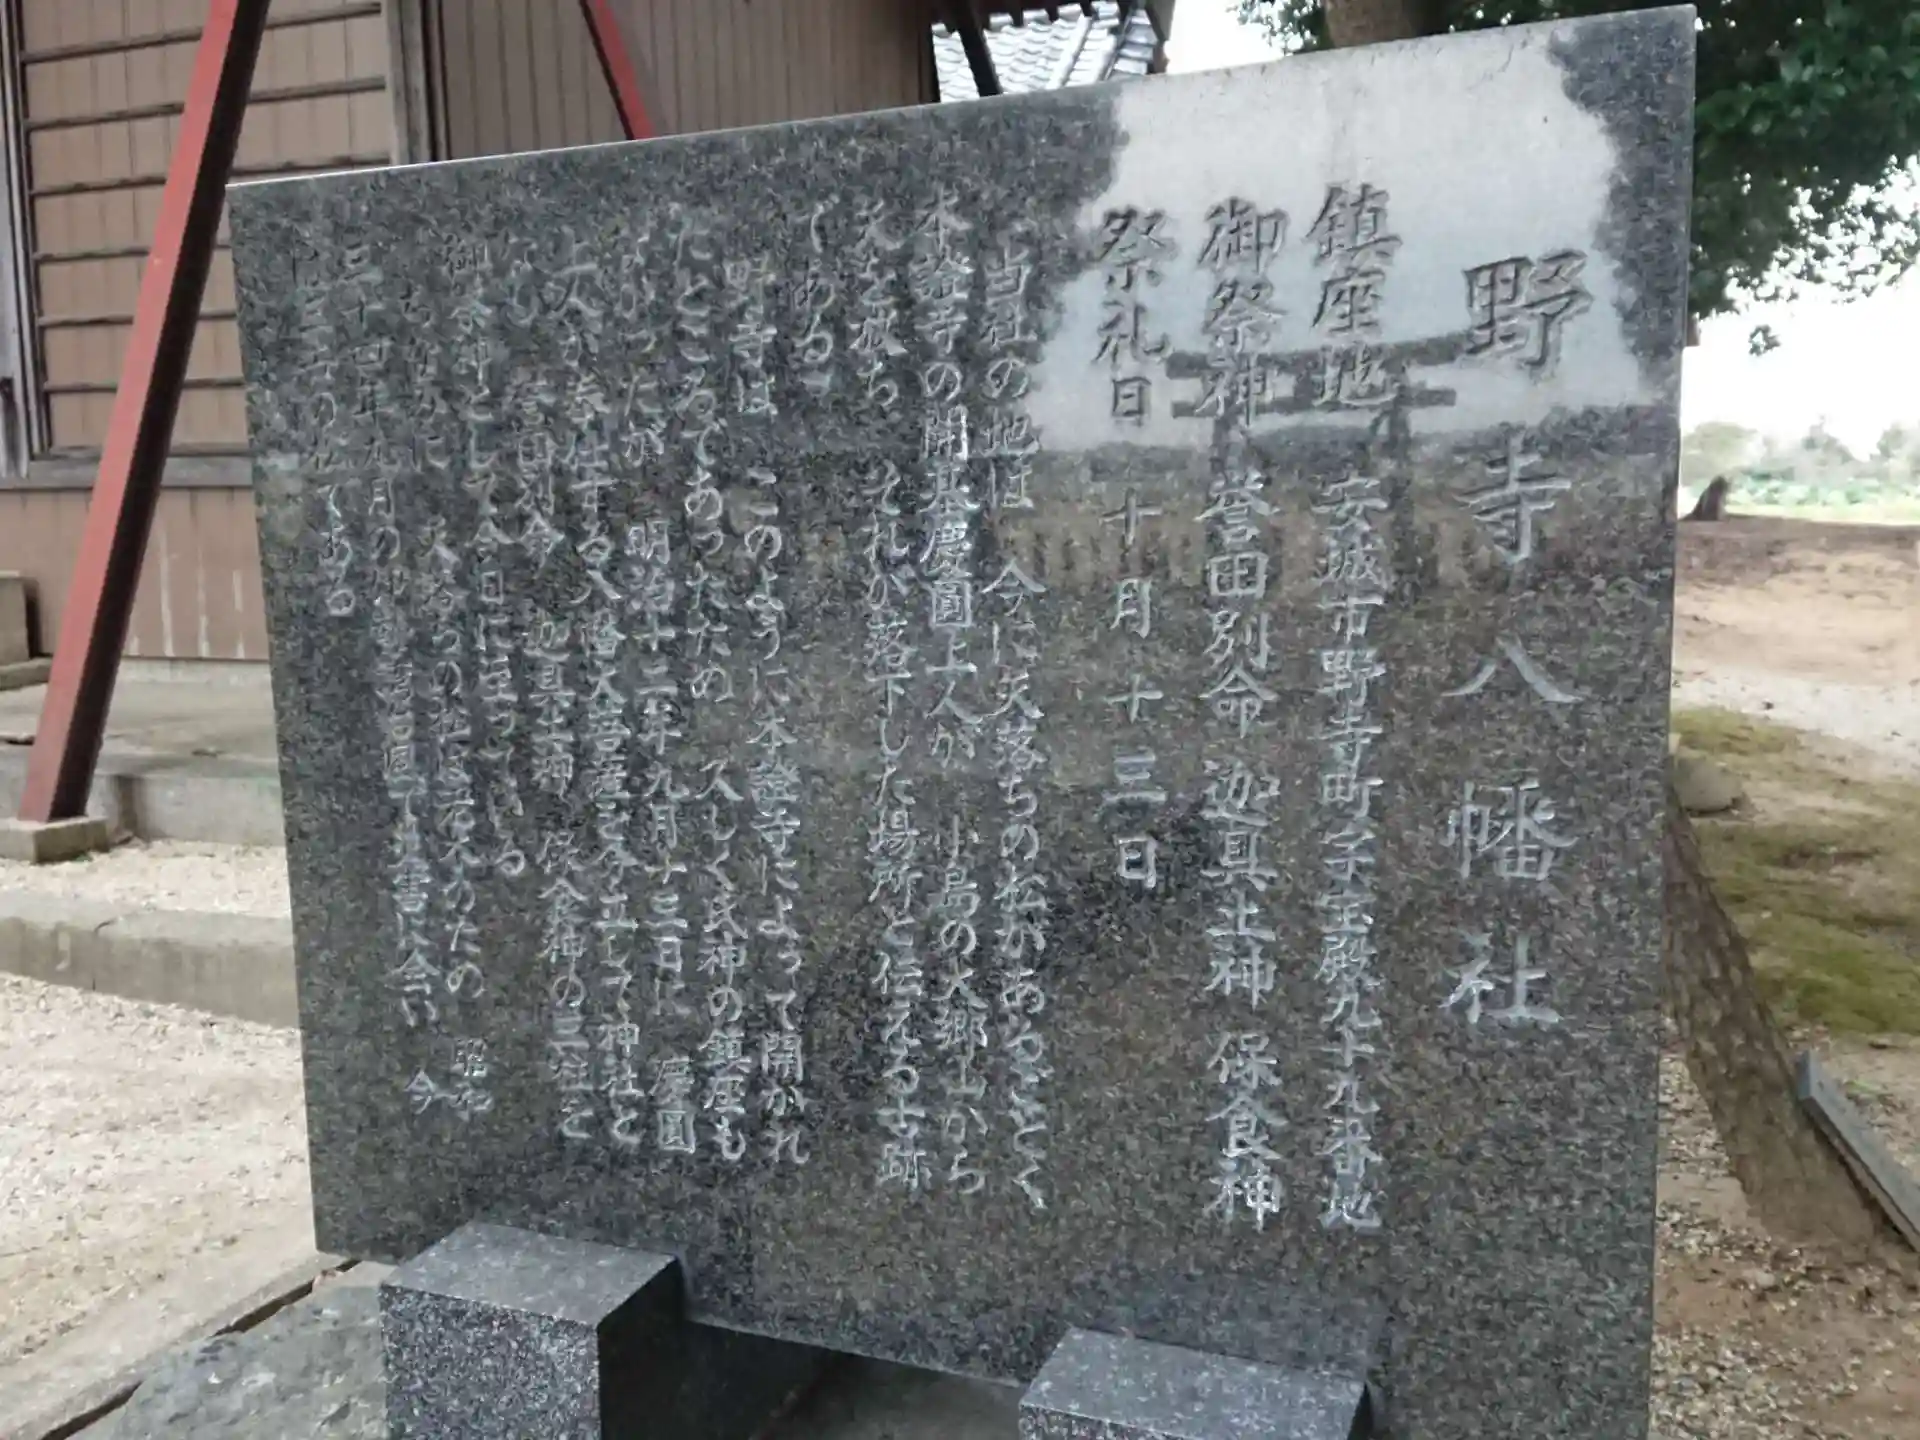 野寺八幡社
鎮座地 安城市野寺町字宝殿九十九番地
御祭神 誉田別命 迦具土神 保食神
祭礼日 十月十三日
当社の地は 今に矢落ちの松があるごとく
本證寺の開基慶圓上人が 小島の大郷山から
矢を放ち それが落下した場所と伝える古跡
である
野寺は このように本證寺によって開かれ
たところであったため 久しく氏神の鎮座も
なかったが 明治十二年九月十三日に 慶圓
上人が奉仕する八幡大菩薩を分立して神社と
なし 誉田別命 迦具土神 保食神の三柱を
御祭神として今日に至っている
ちなみに 矢落ちの松は老木のため 昭和
三十四年九月の台風で災害に会い 今
は
である